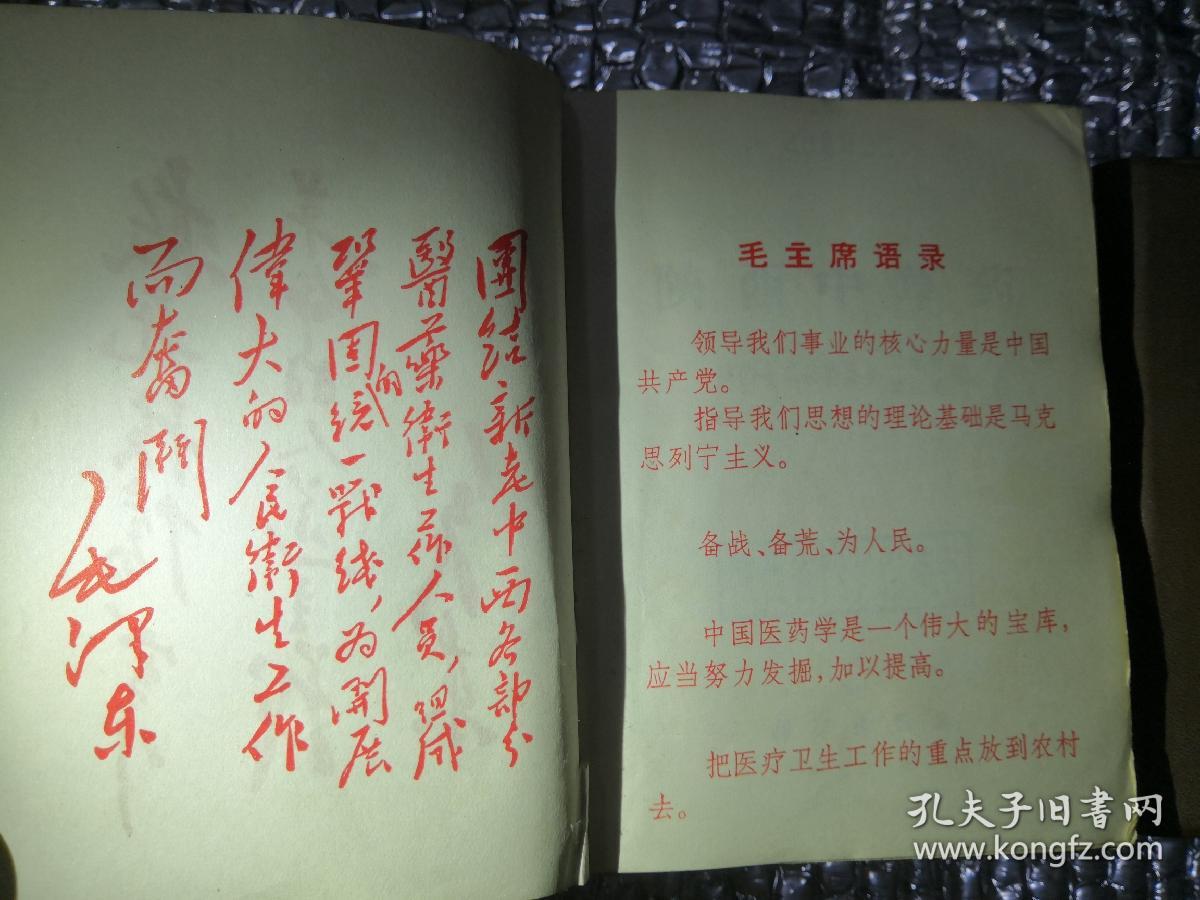 團结新老中西各部分
醫藥衛生工作人员，组成
鞏固的统一戰线，为開展
偉大的人民衛生工作
而奮鬥
毛泽东
毛主席语录
领导我们事业的核心力量是中国
共产党。
指导我们思想的理论基础是马克
思列宁主义。
备战、备荒、为人民。
中国医药学是一个伟大的宝库，
应当努力发掘，加以提高。
把医疗卫生工作的重点放到农村
去。
孔夫子旧书网
www.kongfz.com